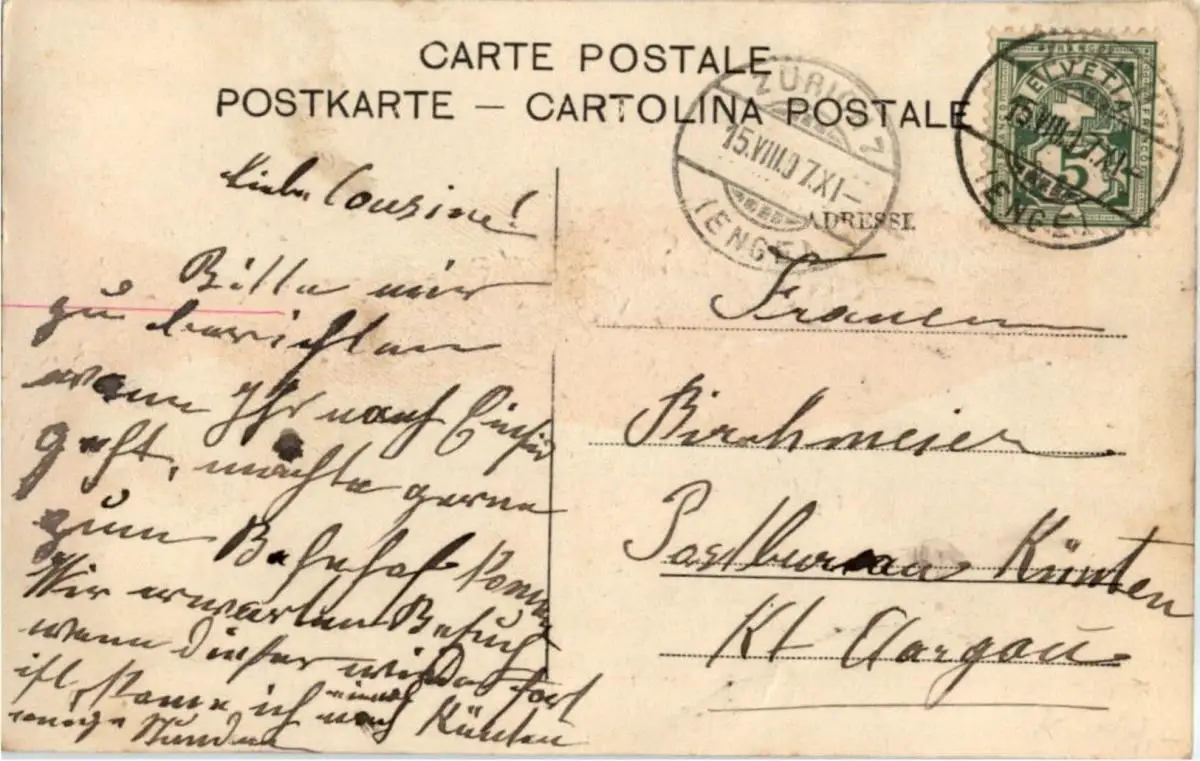 CARTE POSTALE
POSTKARTE — CARTOLINA POSTALE
ZÜRICH 7
15.VIII.07.XI—
(ENGE)
HELVETIA
5
15.VIII.07.XI—
(ENGE)
ADRESSE
Liebe Cousine!
Bitte mir
zu berichten
wann Ihr nach
geht, möchte gerne
zum Bahnhof komen
Wir erwarten Besuch
wenn dieser wieder fort
ist, kome ich einmal
nach Künten
einige Stunden
Frauen
Birchmeier
Postbureau Künten
Kt Aargau